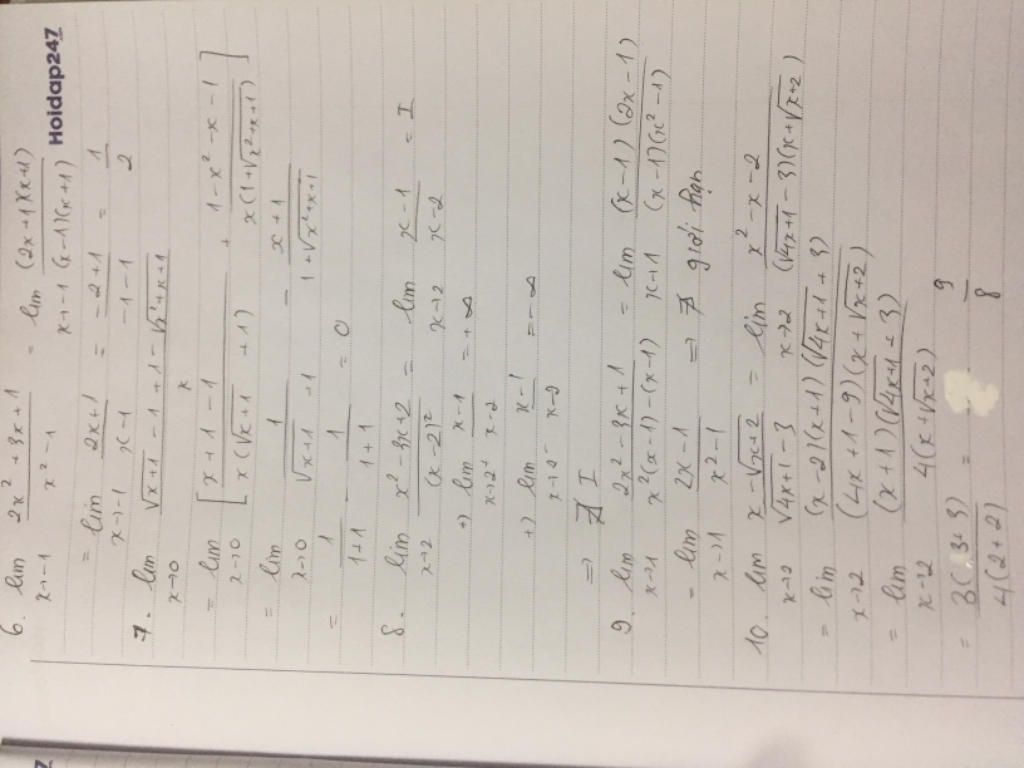 Hoidap247
6. lim x→-1 (2x² + 3x + 1)/(x² - 1) = lim x→-1 (2x+1)(x+1)/(x-1)(x+1)
= lim x→-1 (2x+1)/(x-1) = (-2+1)/(-1-1) = 1/2
7. lim x→0 (√(x+1) - 1 + 1 - √(x²+x+1))/x
= lim x→0 [(x+1-1)/(x(√(x+1) + 1)) + (1-x²-x-1)/(x(1+√(x²+x+1)))]
= lim x→0 1/(√(x+1) + 1) - (x+1)/(1+√(x²+x+1))
= 1/(1+1) - 1/(1+1) = 0
8. lim x→2 (x²-3x+2)/(x-2)² = lim x→2 (x-1)/(x-2) = I
+) lim x→2⁺ (x-1)/(x-2) = +∞
+) lim x→2⁻ (x-1)/(x-2) = -∞
⇒ ∄ I
9. lim x→1 (2x²-3x+1)/(x²(x-1)-(x-1)) = lim x→1 (x-1)(2x-1)/(x-1)(x²-1)
= lim x→1 (2x-1)/(x²-1) ⇒ ∄ giới hạn
10. lim x→2 (x-√(x+2))/(√(4x+1)-3) = lim x→2 (x²-x-2)/((√(4x+1)-3)(x+√(x+2)))
= lim x→2 (x-2)(x+1)(√(4x+1)+3)/((4x+1-9)(x+√(x+2)))
= lim x→2 (x+1)(√(4x+1)+3)/(4(x+√(x+2)))
= 3(3+3)/(4(2+2)) = 9/8